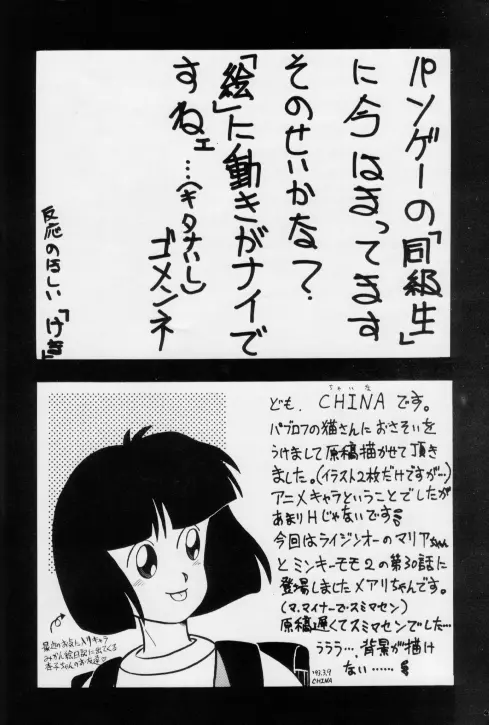 パソゲーの「同級生」
に今はまってます
そのせいかな？
「絵」に動きがナイで
すねェ…(キタナいし)
ゴメンネ
反応のほしい「げき」
ちゃいな
ども、CHINAです。
パブロフの猫さんにおさそいを
うけまして原稿描かせて頂き
ました。(イラスト2枚だけですが…)
アニメキャラということでしたが
あまりHじゃないです
今回はライジンオーのマリアちゃん
とミンキーモモ2の第30話に
登場しましたメアリちゃんです。
(マ、マイナーでスミマセン)
原稿遅くてスミマセンでした…
ううう…、背景が描け
ない……
'93.3.9
CHINA
最近のお気に入りキャラ
みかん絵日記に出てくる
杏子ちゃんのお友達♡